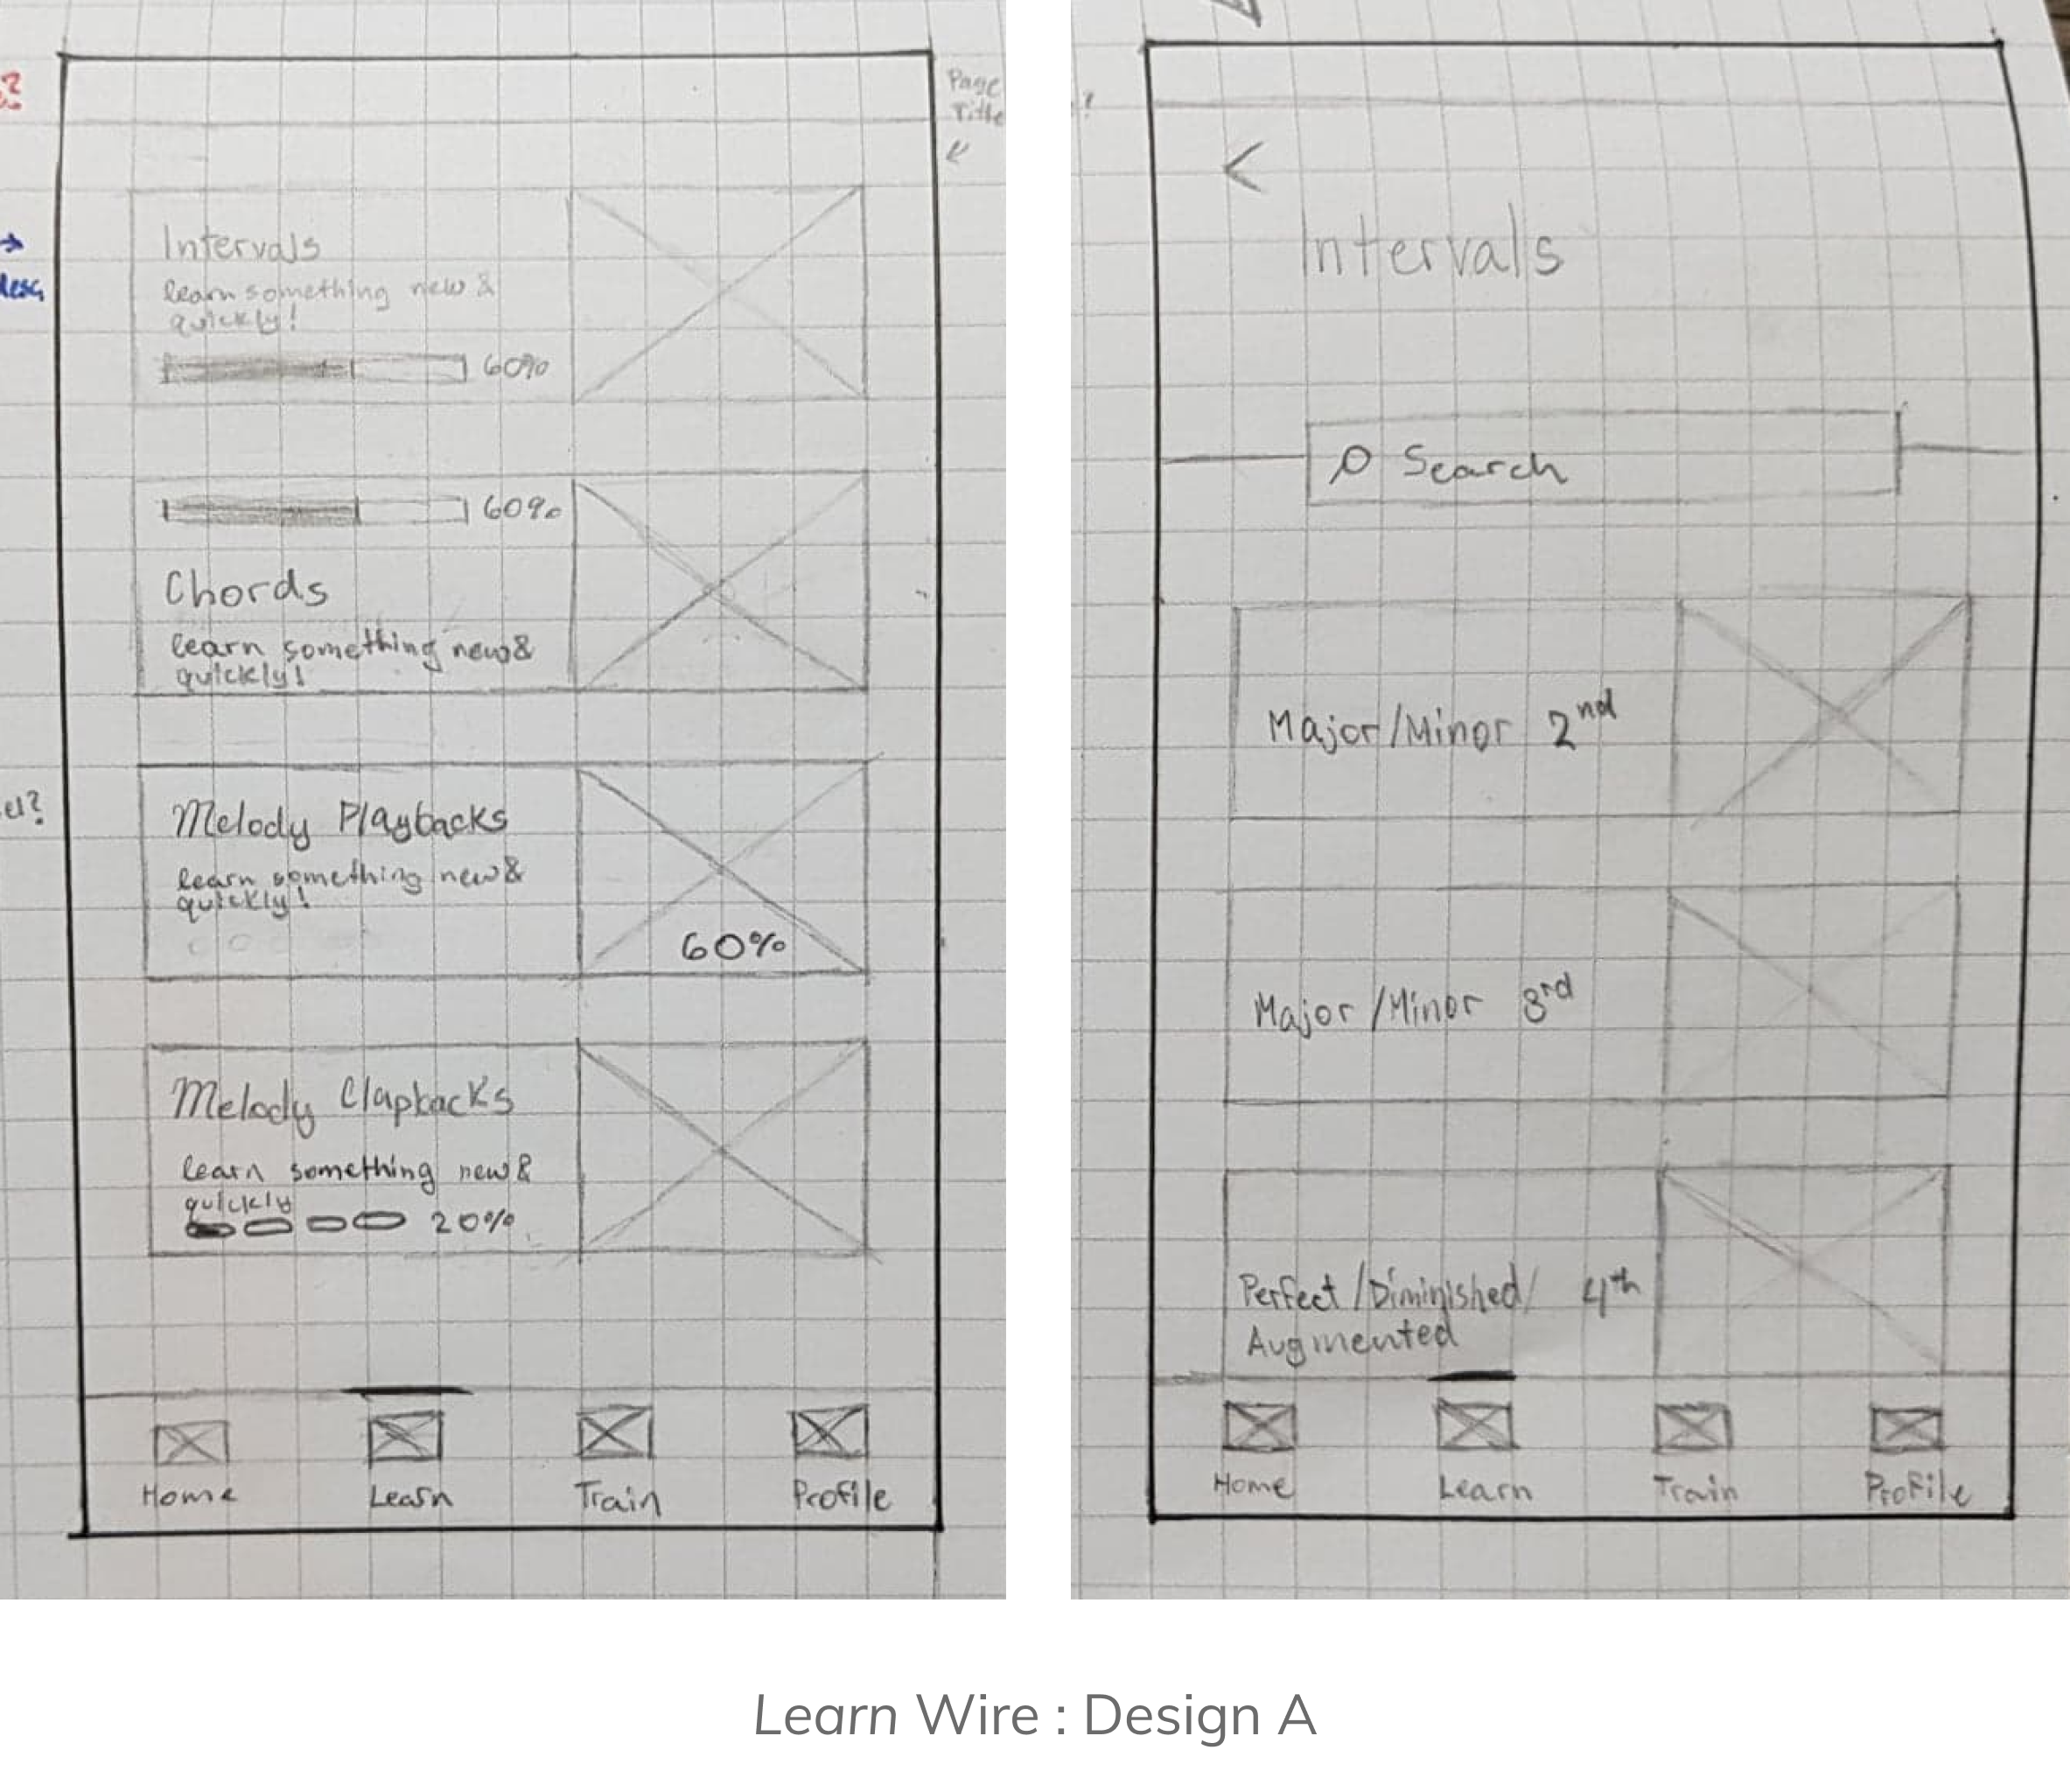 Page
Title
Intervals
learn something new &
quickly!
60%
60%
Chords
learn something new &
quickly!
Melody Playbacks
learn something new &
quickly!
60%
Melody Clapbacks
learn something new &
quickly
20%
Home
Learn
Train
Profile
<
Intervals
Search
Major/Minor 2nd
Major/Minor 3rd
Perfect/Diminished/ 4th
Augmented
Home
Learn
Train
Profile
Learn Wire : Design A